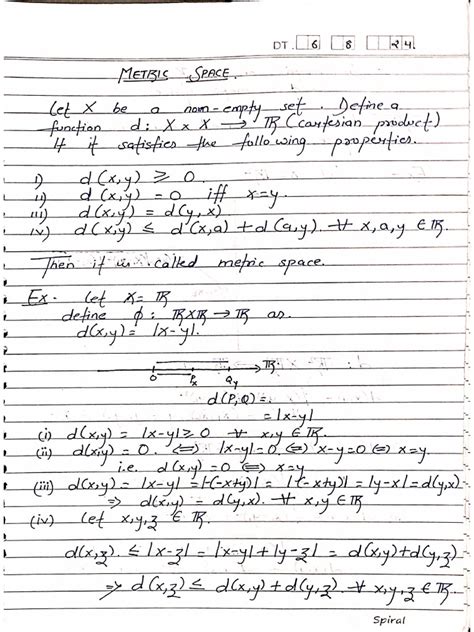 DT. 6 8 24.
METRIC SPACE.
Let X be a non-empty set. Define a
function d: X x X → IR (cartesian product)
If it satisfies the following properties.
i) d(x,y) ≥ 0
ii) d(x,y) = 0 iff x=y.
iii) d(x,y) = d(y,x)
iv) d(x,y) ≤ d(x,a) + d(a,y) ∀ x,a,y ∈ IR.
Then it is called metric space.
Ex. Let X = IR
define ϕ: IRXIR → IR as.
d(x,y) = |x-y|.
0 Px Qy IR.
d(P,Q) =
= |x-y|
(i) d(x,y) = |x-y| ≥ 0 ∀ x,y ∈ IR.
(ii) d(x,y) = 0. ⇔ |x-y| = 0 ⇔ x-y=0 ⇔ x=y.
i.e. d(x,y) = 0 ⇔ x=y
(iii) d(x,y) = |x-y| = |-(-x+y)| = |-x+y| = |y-x| = d(y,x)
⇒ d(x,y) = d(y,x). ∀ x,y ∈ IR
(iv) Let x,y,z ∈ IR.
d(x,z) ≤ |x-z| = |x-y| + |y-z| = d(x,y) + d(y,z)
⇒ d(x,z) ≤ d(x,y) + d(y,z). ∀ x,y,z ∈ IR.
Spiral